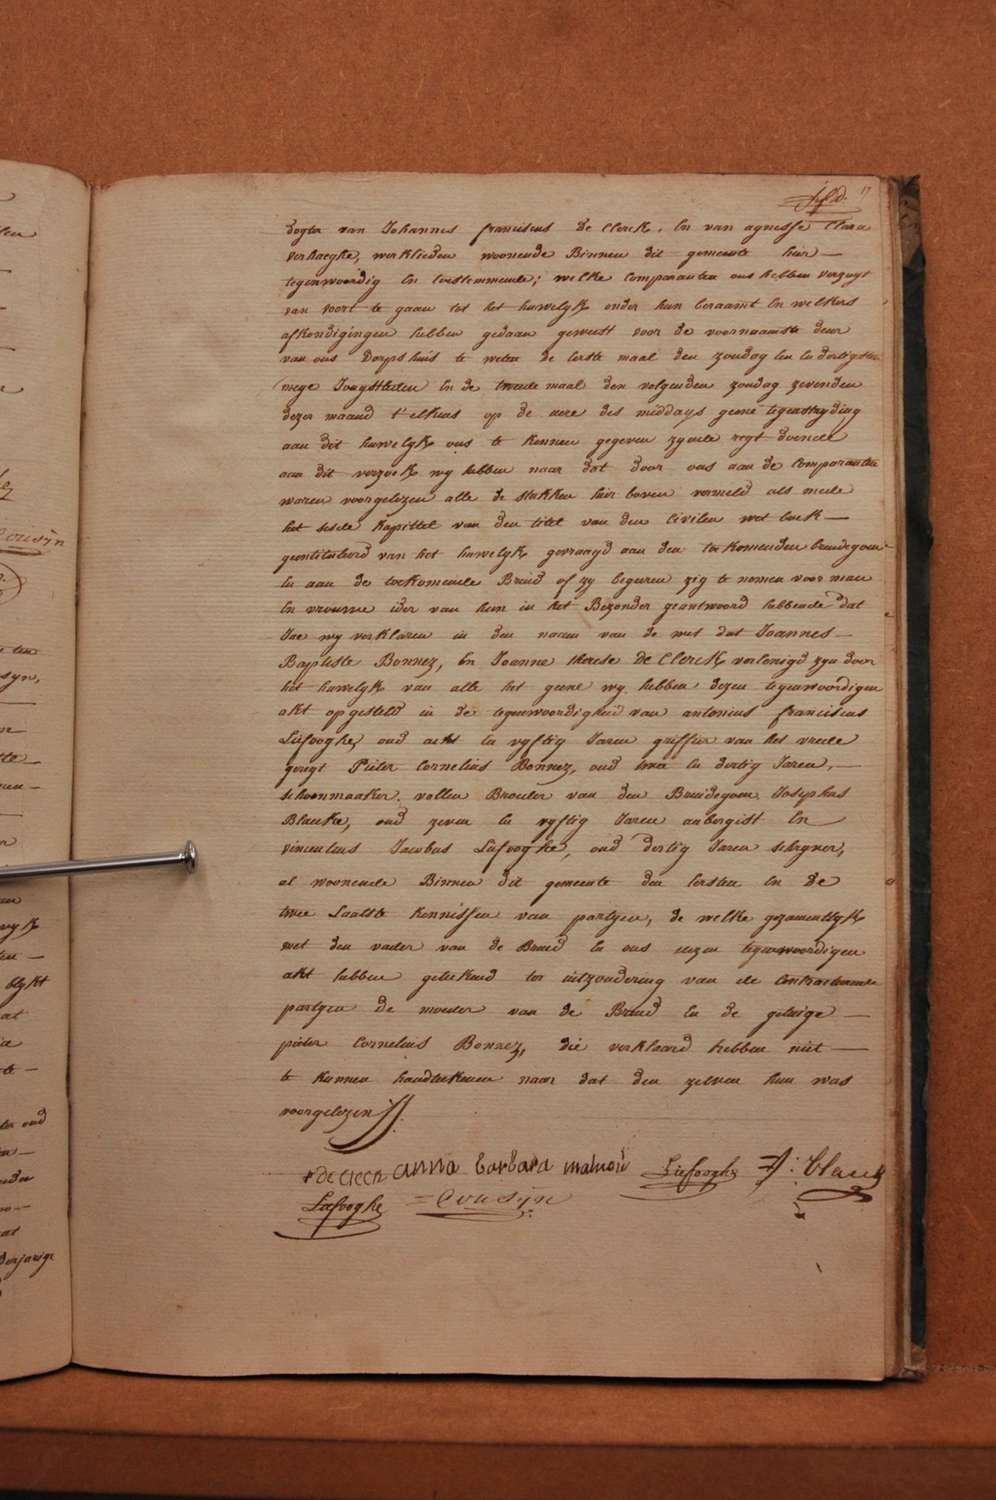 17
dogter van Johannes franciscus De Clerck, En van agnesse Clara
verhaeghe, werklieden woonende Binnen dit gemeente hier —
tegenwoordig En toestemmende; welke Comparanten ons hebben verzogt
van voort te gaan tot het huwelijk onder hun beraamt En welkers
afkondigingen hebben gedaan geweest voor de voornaamste deur
van ons dorpshuis te weten de eerste maal den zondag Een En dertigsten
mege Jongstleden En de tweede maal den volgenden zondag zevenden
dezer maand t'elkens op de uere des middags geene tegenstryding
aan dit huwelyk ons te kennen gegeven zynde regt doende
aan dit verzoek wy hebben naar dat door ons aan de Comparanten
waren voorgelezen alle de stukken hier boven vermeld als mede
het sesde kapittel van den titel van den Civilen wet boek —
geintituleerd van het huwelyk gevraagd aan den toekomenden bruidegom
En aan de toekomende Bruid of zy begeeren zig te nemen voor man
En vrouwe ider van hun in het Bezonder geantwoord hebbende dat
Jae wy verklaren in den naam van de wet dat Joannes —
Baptiste Bonnez, En Joanna therese de Clerck verEenigd zyn door
het huwelyk van alle het geene wy hebben dezen tegenwoordigen
akt opgesteld in de tegenwoordigheid van antonius franciscus
Liefooghe, oud acht En vyftig Jaren griffier van het vrede
geregt Pieter Cornelius Bonnez, oud twee En dertig Jaren, —
schoenmaaker, vollen Broeder van den Bruidegom Josephus
Blancke, oud zeven En vyftig Jaren aubergist En
vincentius Jacobus Liefooghe, oud dertig Jaren schryver,
al woonende Binnen dit gemeente den Eersten En de
twee Laatste kennissen van partyen, de welke gezamentlyk
met den vader van de Bruid En ons dezen tegenwoordigen
akt hebben geteekend ter uitzondering van de Contracteerende
partyen de moeder van de Bruid En de getuige —
pieter Cornelius Bonnez, die verklaard hebben niet —
te kunnen handteekenen naar dat den zelven hun was
voorgelezen
anna barbara Liefooghe J: Blanck
Liefooghe Cousijn